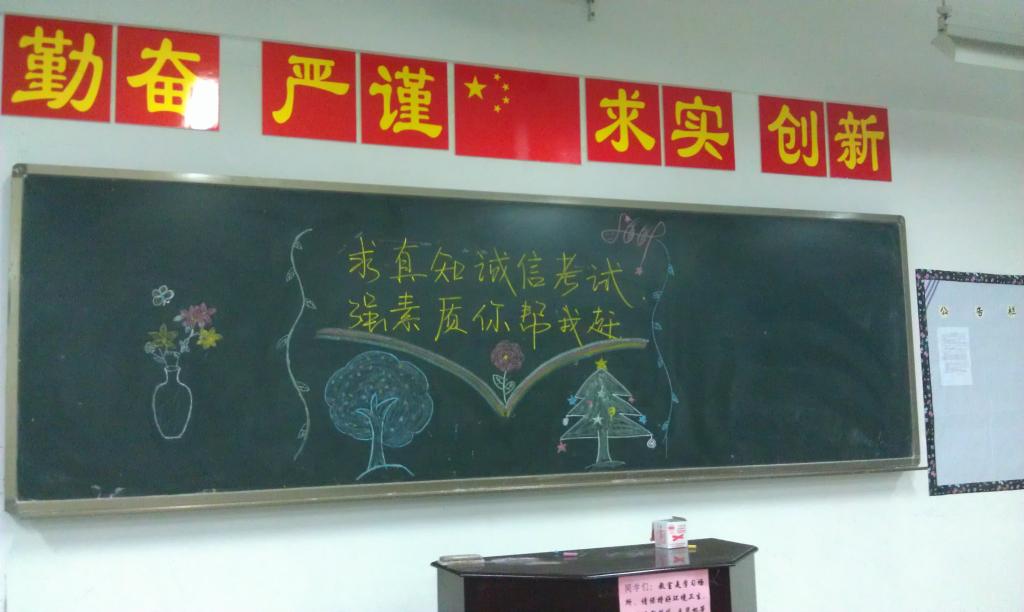 勤奋 严谨 求实 创新
求真知诚信考试
强素质你帮我赶
公告栏
同学们：教室是学习场
所，请保持好环境卫生，